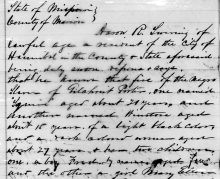 State of Missouri
County of Marion
Aaron R. Levering of
lawful age a resident of the City of
Hannibal in the County & State aforesaid
being duly sworn deposes and
that he knows that five of the Negro
Slaves of Gilchrist Porter, one named
aged about 21 years, and
another named aged
about 18 years, of a light black color
and a dark brown woman
about 27 years & her two children,
one, a boy Frederick
and the other a girl Mary Ellen